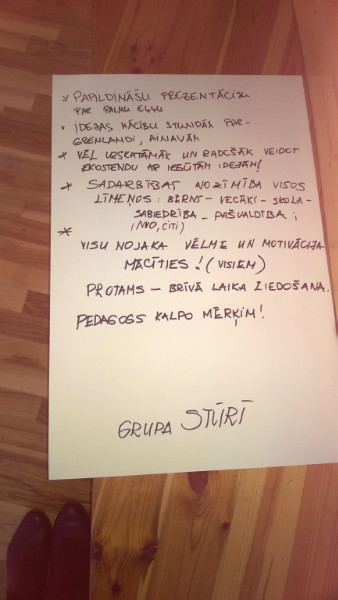 * PAPILDINĀŠU PREZENTĀCIJU
PAR PALMU EĻĻU
* IDEJAS MĀCĪBU STUNDĀM PAR
GRENLANDI, AINAVĀM
* VĒL UZSKATĀMĀK UN RADOŠĀK VEIDOT
EKOSTENDU AR IEGŪTĀM IDEJĀM!
* SADARBĪBAS NOZĪMĪBA VISOS
LĪMEŅOS: BĒRNS - VECĀKI - SKOLA -
SABIEDRĪBA - PAŠVALDĪBA ;
(NVO, CITI)
*
VISU NOJAKA VĒLME UN MOTIVĀCIJA
MĀCĪTIES! (VISIEM)
PROTAMS - BRĪVĀ LAIKA ZIEDOŠANA.
PEDAGOGS KALPO MĒRĶIM!
GRUPA STŪRĪ